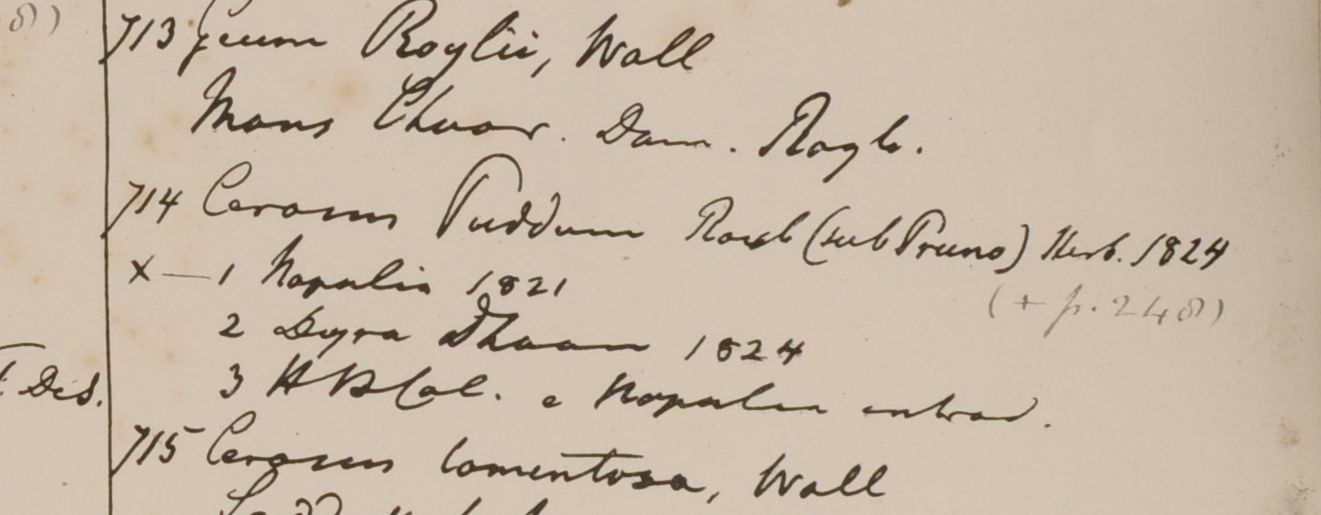 8)
713 Geum Roylii, Wall
Mons Chuor. Dom. Royle.
714 Cerasus Puddum Roxb (sub Pruno) Herb. 1824
(+ p. 248)
x — 1 Napalia 1821
2 Deyra Dhoon 1824
3 H B Cal. e Napalia introd.
Des.
715 Cerasus tomentosa, Wall